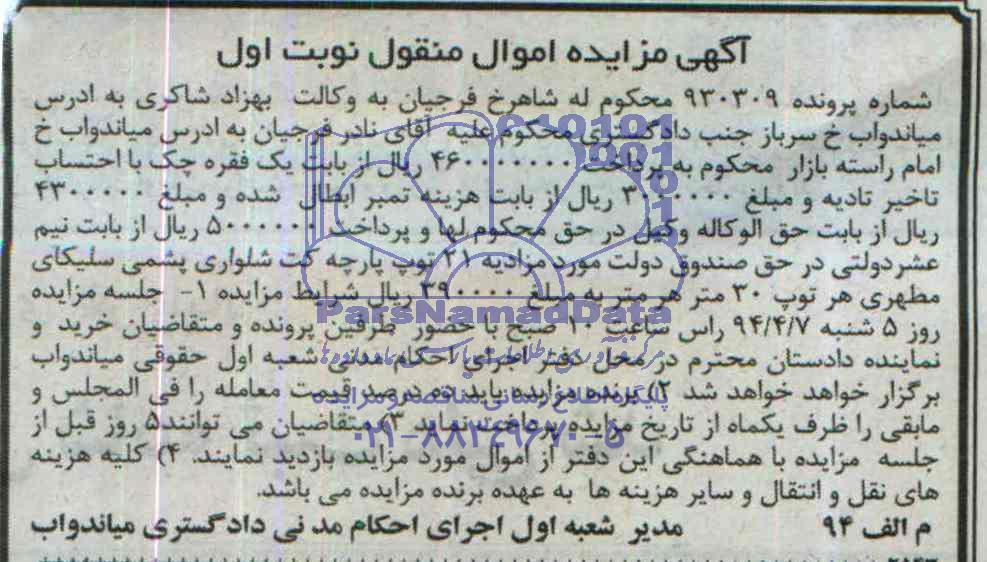 آگهی مزایده اموال منقول نوبت اول
شماره پرونده ۹۳۰۳۰۹ محکوم له شاهرخ فرجیان به وکالت بهزاد شاکری به ادرس
میاندواب خ سرباز جنب دادگستری محکوم علیه آقای نادر فرجیان به ادرس میاندواب خ
امام راسته بازار محکوم به پرداخت ریال از بابت یک فقره چک با احتساب
تاخیر تادیه و مبلغ ریال از بابت هزینه تمبر ابطال شده و مبلغ ۴۳۰۰۰۰۰
ریال از بابت حق الوکاله وکیل در حق محکوم لها و پرداخت ریال از بابت نیم
عشردولتی در حق صندوق دولت مورد مزادیه ۲۱ توپ پارچه کت شلواری پشمی سلیکای
مطهری هر توپ ۳۰ متر هر متر به مبلغ ۳۹۰۰۰۰ ریال شرایط مزایده ۱- جلسه مزایده
روز ۵ شنبه ۹۴/۴/۷ راس ساعت ۱۰ صبح با حضور طرفین پرونده و متقاضیان خرید و
نماینده دادستان محترم در محل دفتر اجرای احکام مدنی شعبه اول حقوقی میاندواب
برگزار خواهد خواهد شد ۲) برنده مزایده باید ده درصد قیمت معامله را فی المجلس و
مابقی را ظرف یکماه از تاریخ مزایده پرداخت نماید ۳) متقاضیان می توانند۵ روز قبل از
جلسه مزایده با هماهنگی این دفتر از اموال مورد مزایده بازدید نمایند. ۴) کلیه هزینه
های نقل و انتقال و سایر هزینه ها به عهده برنده مزایده می باشد.
م الف ۹۴ مدیر شعبه اول اجرای احکام مدنی دادگستری میاندواب
ParsNamadData
پایگاه اطلاع رسانی مناقصه و مزایده
۰۲۱-۸۸۳۴۹۶۷۰-۵